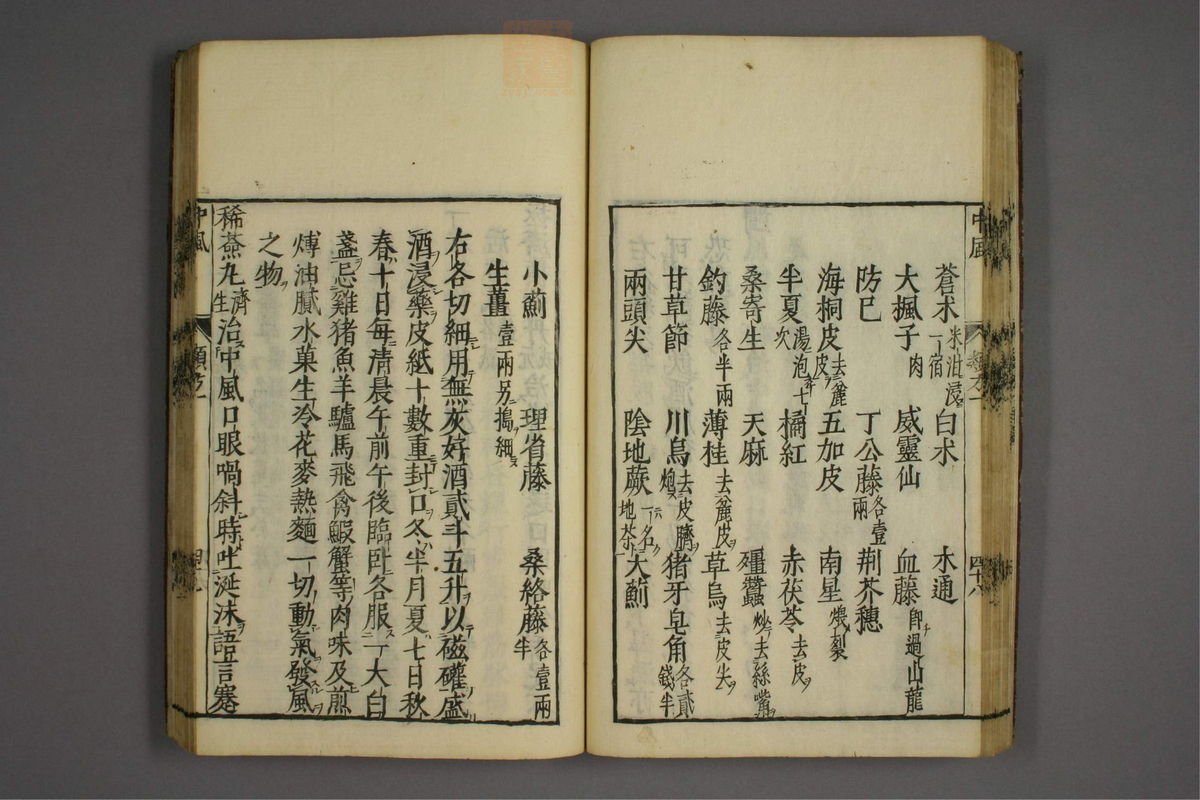 中風
蒼朮米泔浸一宿 白朮 木通
大楓子肉 威靈仙 血藤即過山龍
防巳 丁公藤各壹兩 荆芥穗
海桐皮去麄皮 五加皮 南星煨裂
半夏湯泡七次 橘紅 赤茯苓去皮
桑寄生 天麻 殭蠶炒去絲嘴
釣藤各半兩 薄桂去麄皮 草烏去皮尖
甘草節 川烏炮去皮臍 猪牙皂角各貳錢半
兩頭尖 陰地蕨一名地茶 大薊
小薊 理省藤 桑絡藤各壹兩半
生薑壹兩另搗細
右各切細用無灰好酒貳斗五升以磁礶盛
酒浸藥皮紙十數重封口冬半月夏七日秋
春十日每清晨午前午後臨卧各服一大白
盞忌雞猪魚羊驢馬飛禽鰕蟹等肉味及煎
煿油膩水菓生冷花麥熱麵一切動氣發風
之物
稀薟丸濟生治中風口眼喎斜時吐涎沫語言蹇
中風